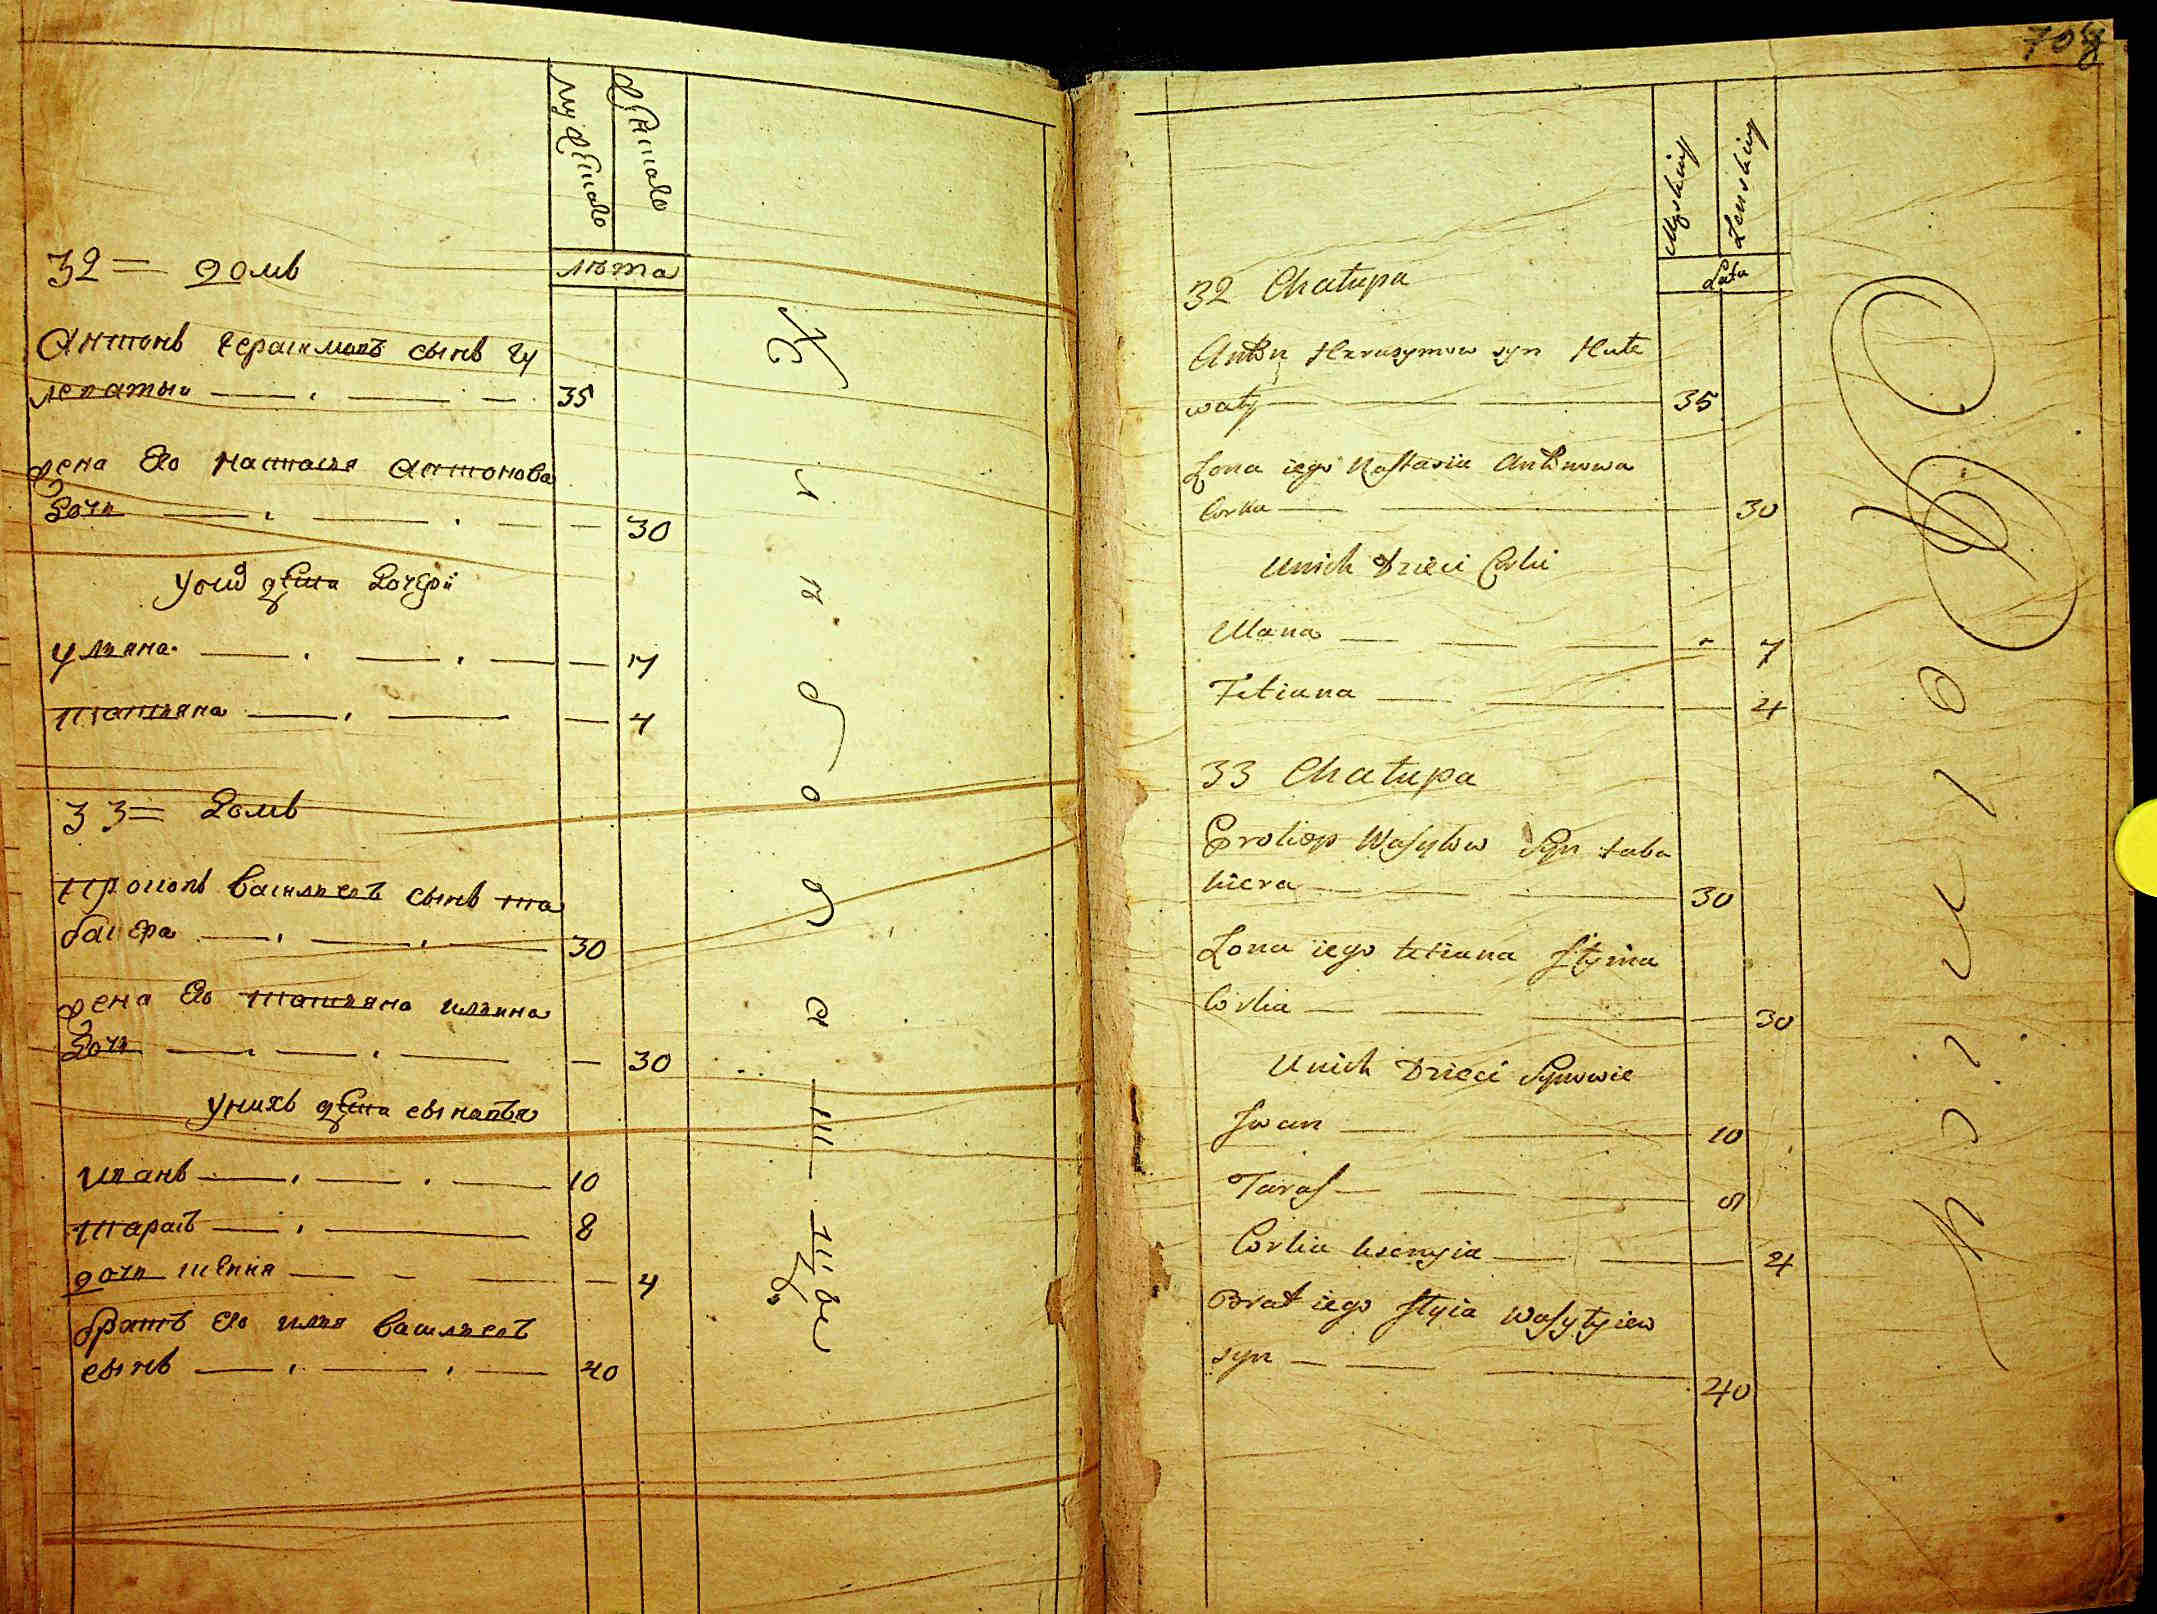 мужеска
женска
лѣта
32 = домъ
Антонъ Герасимовъ сынъ гу
леватыи 35
жена его настасия антонова
дочь 30
у нихъ дѣти дочери
уляна 7
татияна 4
33 = домъ
прокопъ василиевъ сынъ та
бакера 30
жена его татияна илiина
дочь 30
у нихъ дѣти сыновья
иванъ 10
тарасъ 8
дочь 4
братъ его илия василиевъ
сынъ 40
708
Męskiey
Żenskiey
Lata
32 Chałupa
Anton Herasymow syn Hule
waty 35
Zona iego Nastasia Antonowa
Corka 30
Unich Dzieci Corki
Ulana 7
Tetiana 4
33 Chałupa
Prokop Wasylow Syn taba
kiera 30
Zona iego tetiana Ilyina
Corka 30
Unich Dzieci Synowie
Iwan 10
Taras 8
Corka ksenyia 4
Brat iego Ilyia Wasylyiew
syn 40